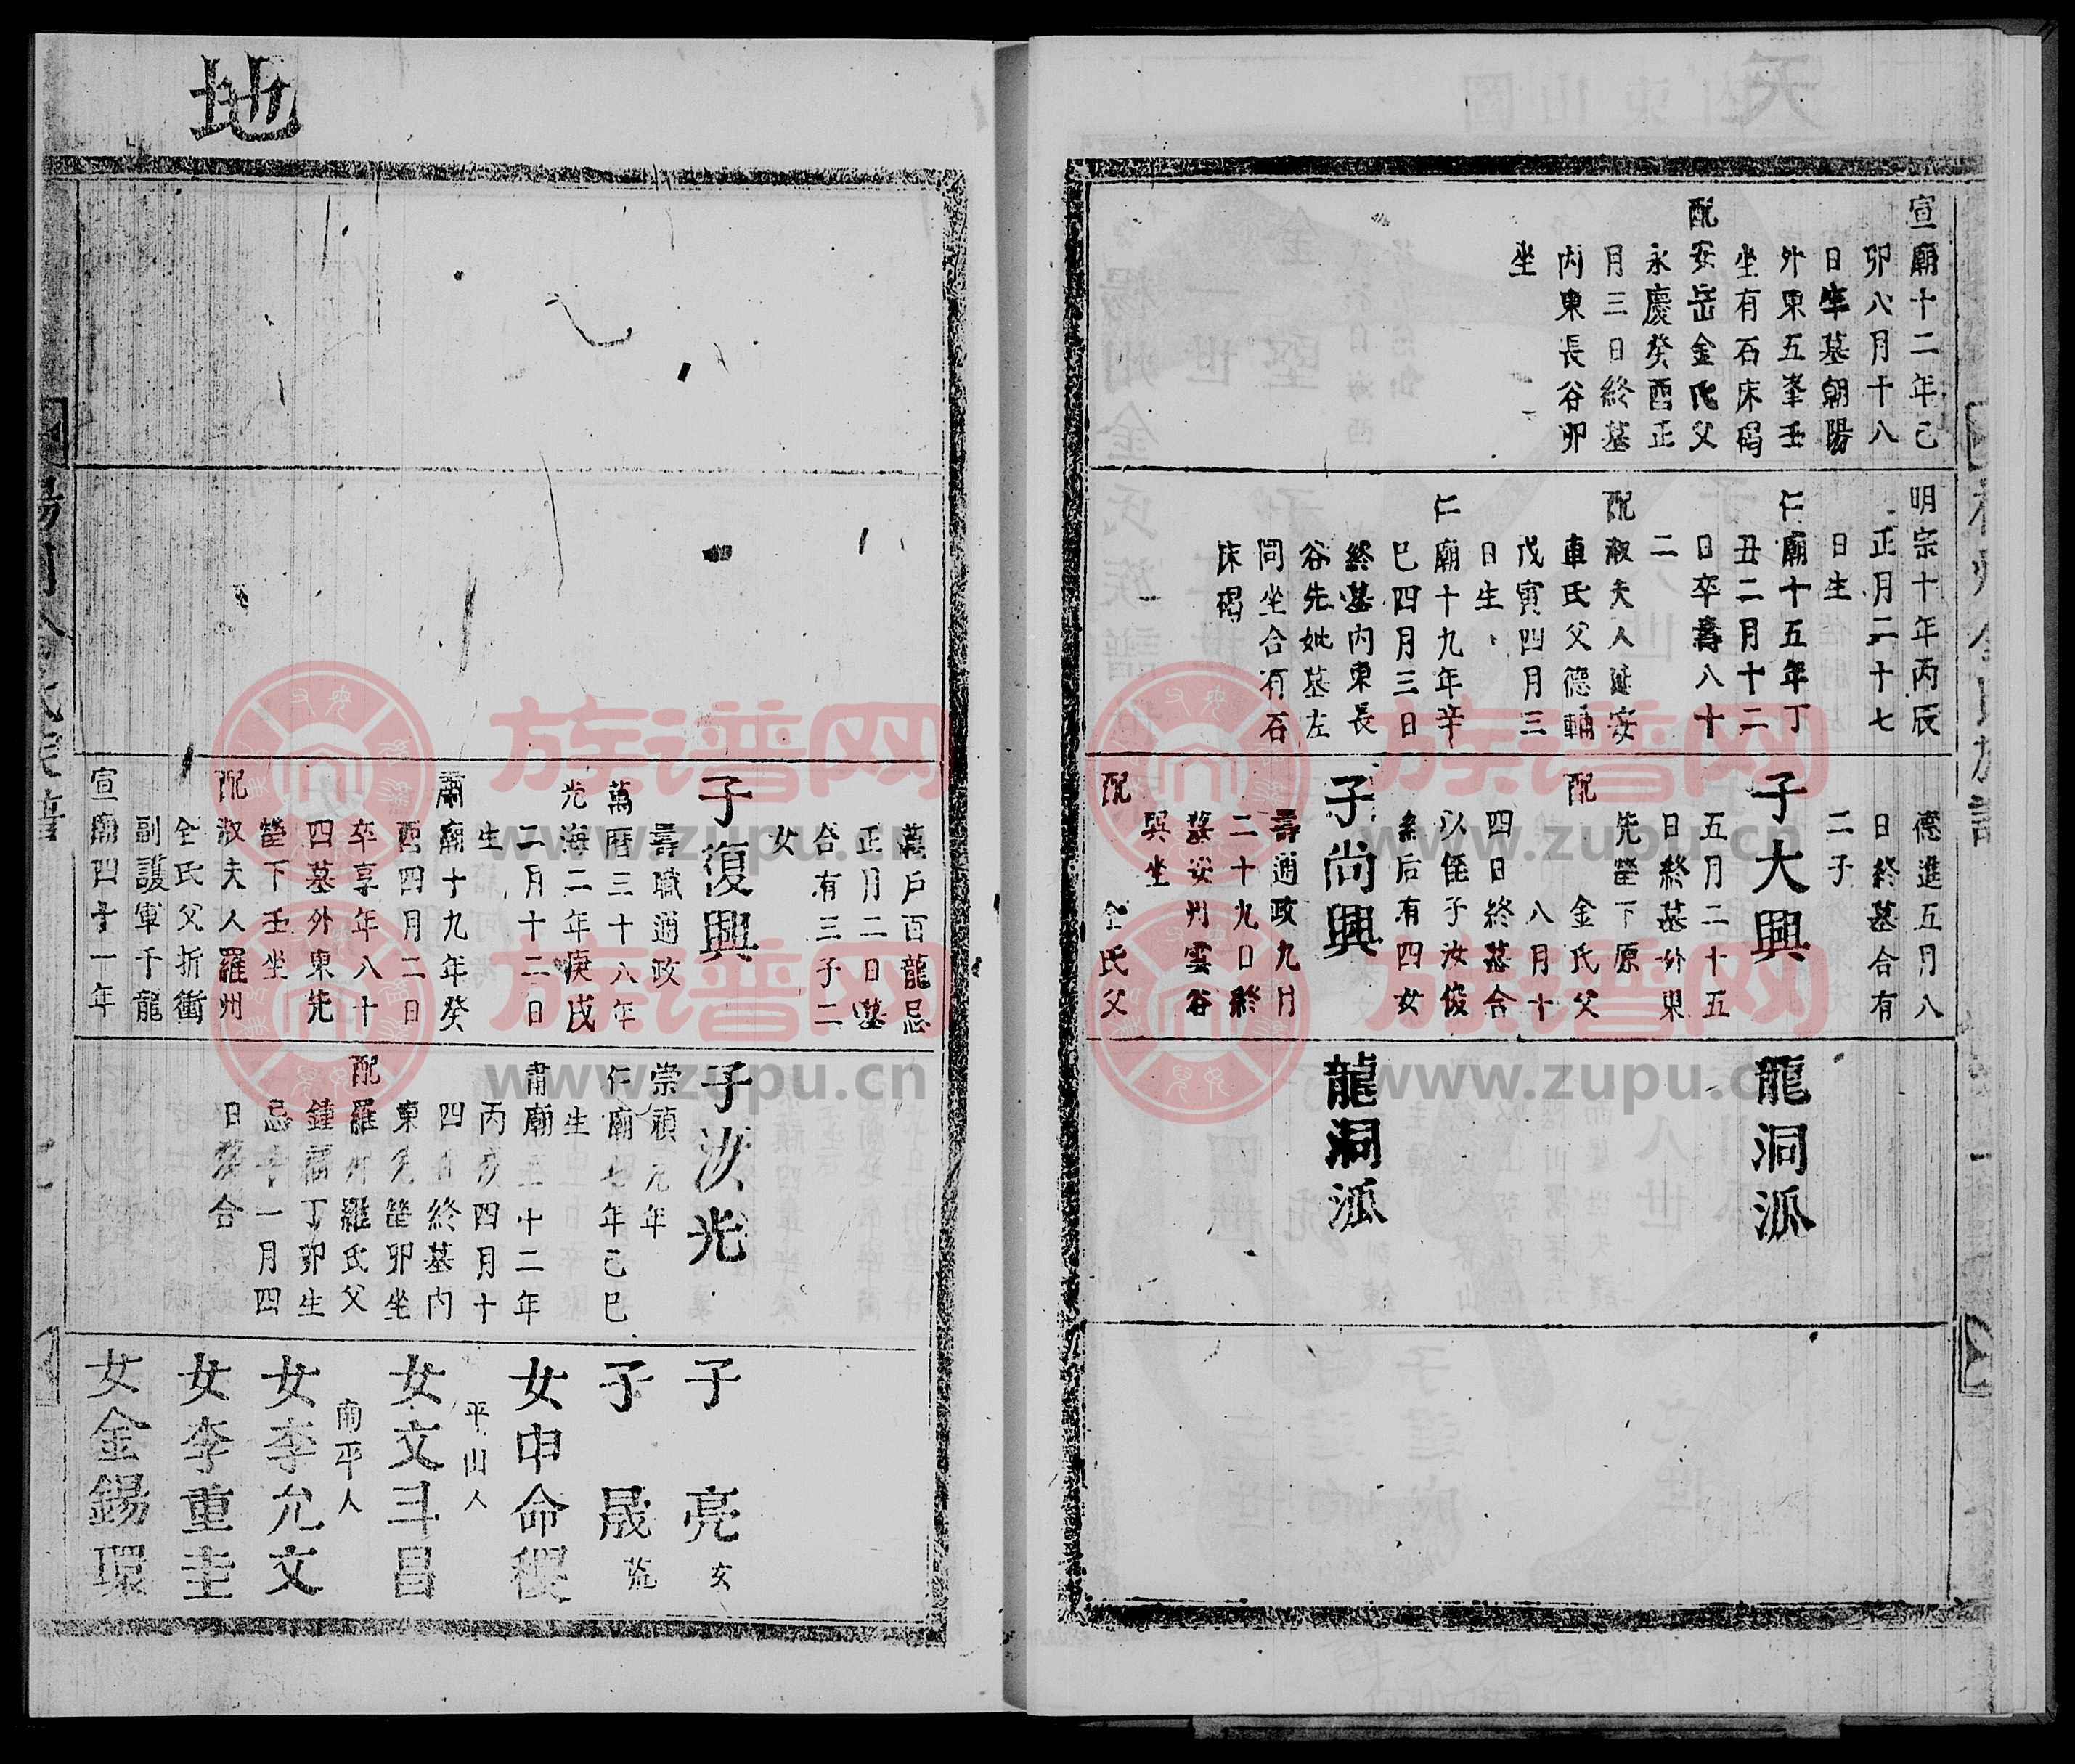 宣廟十二年己
卯八月十八
日卒墓朝陽
外東五峯壬
坐有石床碣
配安岳金氏父
永慶癸酉正
月三日終墓
内東長谷卯
坐
明宗十年丙辰
正月二十七
日生
仁廟十五年丁
丑二月十二
日卒壽八十
二
配淑夫人延安
車氏父德輔
戊寅四月三
日生
仁廟十九年辛
巳四月三日
終墓内東長
谷先妣墓左
同坐合有石
床碣
德進五月八
日終墓合有
二子
子大興
五月二十五
日終墓外東
先塋下原
配 金氏父
八月十
四日終墓合
以侄子汝俊
系后有四女
子尚興
壽通政九月
二十九日終
墓安州雲谷
巽坐
配 全氏父
龍洞派
龍洞派
地
萬戶百龍忌
正月二日墓
合有三子二
女
子復興
壽職通政
萬曆三十八年
光海二年庚戌
二月十二日
生
肅廟十九年癸
酉四月二日
卒享年八十
四墓外東先
塋下壬坐
配淑夫人羅州
全氏父折衝
副護軍千龍
宣廟四十一年
子汝光
崇禎元年
仁廟七年己巳
生
肅廟三十二年
丙戌四月十
四日終墓内
東先塋卯坐
配羅州羅氏父
鍾福丁卯生
忌十一月四
日墓合
子亮
女
子晟
女申命稷
平山人
女文斗昌
南平人
女李允文
女李重圭
女金錫環
族谱网
www.zupu.cn
族谱网
www.zupu.cn
族谱网
www.zupu.cn
族谱网
www.zupu.cn